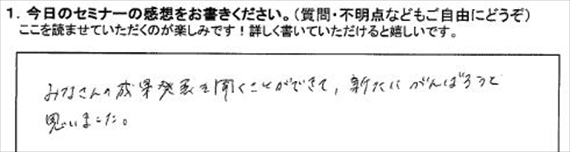 1. 今日のセミナーの感想をお書きください。（質問・不明点などもご自由にどうぞ）
ここを読ませていただくのが楽しみです！詳しく書いていただけると嬉しいです。
みなさんの成果発表を聞くことができて、新たにがんばろうと
思いました。